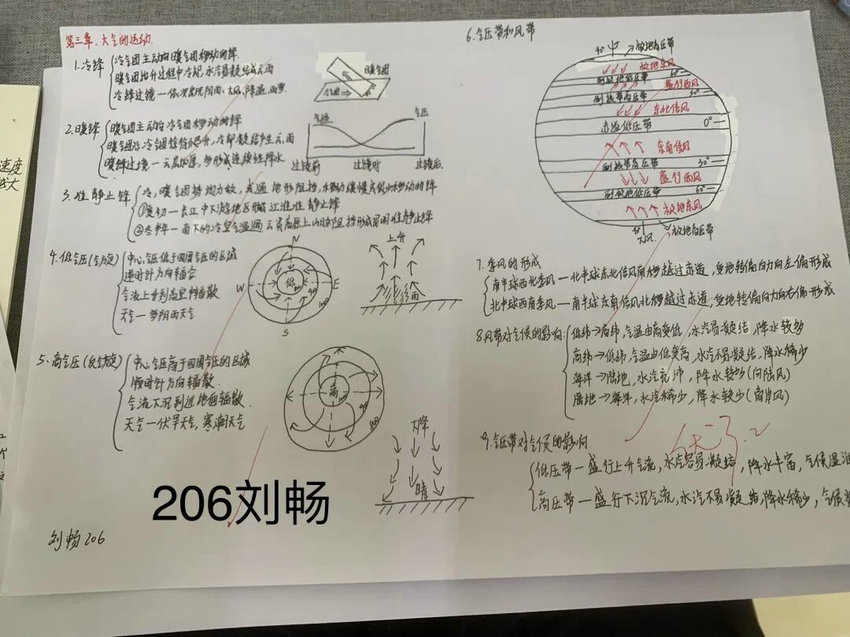 第三章、大气的运动.
1.冷锋
冷气团主动向暖气团移动的锋
暖气团抬升过程中冷却,水汽易凝结成云雨
冷锋过境一依次出现阴雨、大风、降温、雨雪
暖气团
冷气团
2.暖锋
暖气团主动向冷气团移动的锋
暖气团沿冷气团徐徐爬升,冷却凝结产生云雨
暖锋过境一云层加厚,多形成连续性降水
气温
气压
过境前
过境时
过境后
3.准静止锋
冷,暖气团势均力敌,或遇地形阻挡,
4.低气压(气旋)
中心气压低于四周气压的区域
逆时针方向辐合
气流上升到高空辐散
天气一多阴雨天气
N
W
低
E
S
上升
5.高气压(反气旋)
中心气压高于四周气压的区域
顺时针方向辐散
气流下沉到近地面辐散
天气一伏旱天气,寒潮天气
高
下降
晴
206刘畅
刘畅206
6.气压带和风带
极地高压带
极地东风
副极地低压带
60°
盛行西风
副热带高压带
30°
东北信风
赤道低压带
0°
东南信风
副热带高压带
30°
盛行西风
副极地低压带
60°
极地东风
极地高压带
7.季风的形成
南半球西北季风一北半球东北信风南移越过赤道,受地转偏向力向左偏形成
北半球西南季风一南半球东南信风北移越过赤道,受地转偏向力向右偏形成
8.风带对气候的影响:
低纬→高纬,气温由高变低,水汽易凝结,降水较多
高纬→低纬,气温由低变高,水汽不易凝结,降水稀少
海洋→陆地,水汽充沛,降水较多(向陆风)
陆地→海洋,水汽稀少,降水较少(离岸风)
9.气压带对气候的影响
低压带一盛行上升气流,水汽容易凝结,降水丰富,气候湿
高压带一盛行下沉气流,水汽不易凝结,降水稀少,气候